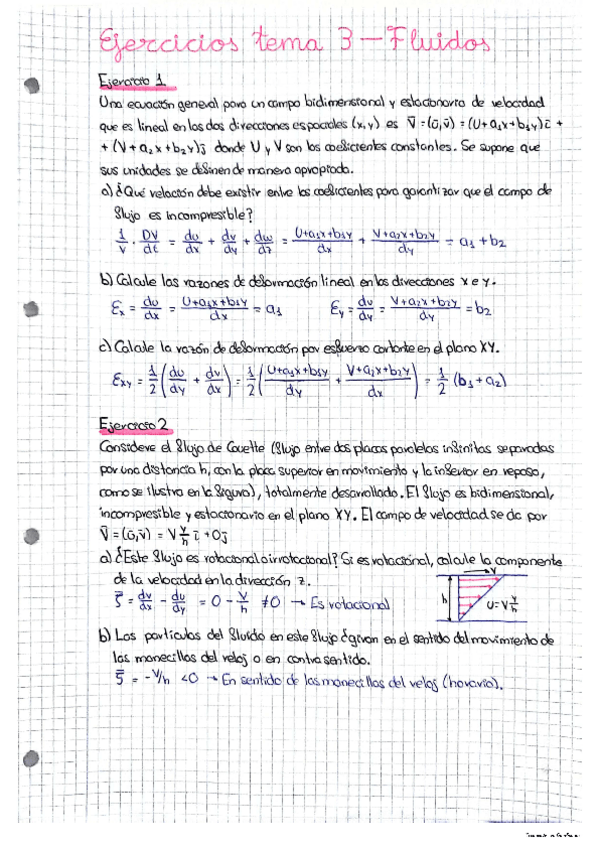 Ejercicios tema 3 – Fluidos
Ejercicio 1
Una ecuación general para un campo bidimensional y estacionario de velocidad
que es lineal en los dos direcciones espaciales (x,y) es V̄ = (ū,v̄) = (U+a₁x+b₁y)ī +
+ (V+a₂x+b₂y)j̄ donde U y V son los coeficientes constantes. Se supone que
sus unidades se definen de manera apropiada.
a) ¿Qué relación debe existir entre los coeficientes para garantizar que el campo de
flujo es incompresible?
1/V · DV/dt = du/dx + dv/dy + dw/dz = U+a₁x+b₁y/dx + V+a₂x+b₂y/dy = a₁ + b₂
b) Calcule las razones de deformación lineal en las direcciones x e y.
Ɛx = du/dx = U+a₁x+b₁y/dx = a₁ Ɛy = dv/dy = V+a₂x+b₂y/dy = b₂
c) Calcule la razón de deformación por esfuerzo cortante en el plano XY.
Ɛxy = 1/2 (du/dy + dv/dx) = 1/2 (U+a₁x+b₁y/dy + V+a₂x+b₂y/dx) = 1/2 (b₁ + a₂)
Ejercicio 2
Considere el flujo de Couette (flujo entre dos placas paralelas infinitas separadas
por una distancia h, con la placa superior en movimiento y la inferior en reposo,
como se ilustra en la figura), totalmente desarrollado. El flujo es bidimensional,
incompresible y estacionario en el plano XY. El campo de velocidad se da por
V̄ = (ū,v̄) = V y/h ī + 0j̄
a) ¿Este flujo es rotacional o irrotacional? Si es rotacional, calcule la componente
de la velocidad en la dirección z.
V
h
u = V y/h
ζ̄ = dv/dx - du/dy = 0 - V/h ≠0 → Es rotacional
b) Las partículas del fluido en este flujo ¿giran en el sentido del movimiento de
las manecillas del reloj o en contrasentido.
ζ̄ = -V/h <0 → En sentido de las manecillas del reloj (horario).